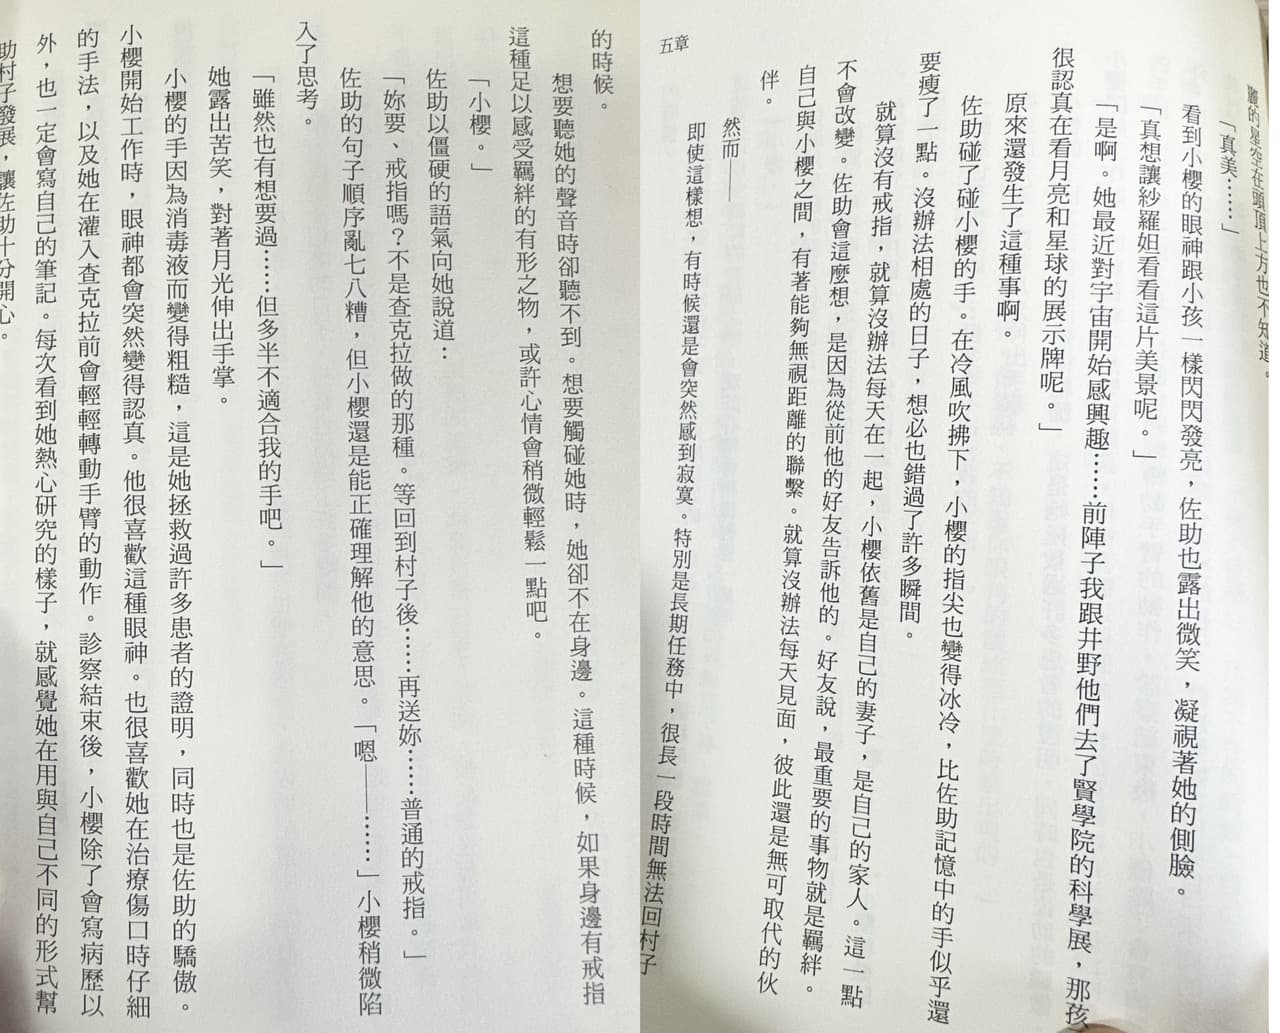 的星空在頭頂上方也不知道。
「真美……」
看到小櫻的眼神跟小孩一樣閃閃發亮，佐助也露出微笑，凝視著她的側臉。
「真想讓紗羅妲看看這片美景呢。」
「是啊。她最近對宇宙開始感興趣……前陣子我跟井野他們去了賢學院的科學展，那孩
很認真在看月亮和星球的展示牌呢。」
原來還發生了這種事啊。
佐助碰了碰小櫻的手。在冷風吹拂下，小櫻的指尖也變得冰冷，比佐助記憶中的手似乎還
要瘦了一點。沒辦法相處的日子，想必也錯過了許多瞬間。
就算沒有戒指，就算沒辦法每天在一起，小櫻依舊是自己的妻子，是自己的家人。這一點
不會改變。佐助會這麼想，是因為從前他的好友告訴他的。好友說，最重要的事物就是羈絆。
自己與小櫻之間，有著能夠無視距離的聯繫。就算沒辦法每天見面，彼此還是無可取代的伙
伴。
然而——
即使這樣想，有時候還是會突然感到寂寞。特別是長期任務中，很長一段時間無法回村子
五章
的時候。
想要聽她的聲音時卻聽不到。想要觸碰她時，她卻不在身邊。這種時候，如果身邊有戒指
這種足以感受羈絆的有形之物，或許心情會稍微輕鬆一點吧。
「小櫻。」
佐助以僵硬的語氣向她說道：
「妳要、戒指嗎？不是查克拉做的那種。等回到村子後……再送妳……普通的戒指。」
佐助的句子順序亂七八糟，但小櫻還是能正確理解他的意思。「嗯——……」小櫻稍微陷
入了思考。
「雖然也有想要過……但多半不適合我的手吧。」
她露出苦笑，對著月光伸出手掌。
小櫻的手因為消毒液而變得粗糙，這是她拯救過許多患者的證明，同時也是佐助的驕傲。
小櫻開始工作時，眼神都會突然變得認真。他很喜歡這種眼神。也很喜歡她在治療傷口時仔細
的手法，以及她在灌入查克拉前會輕輕轉動手臂的動作。診察結束後，小櫻除了會寫病歷以
外，也一定會寫自己的筆記。每次看到她熱心研究的樣子，就感覺她在用與自己不同的形式幫
助村子發展，讓佐助十分開心。